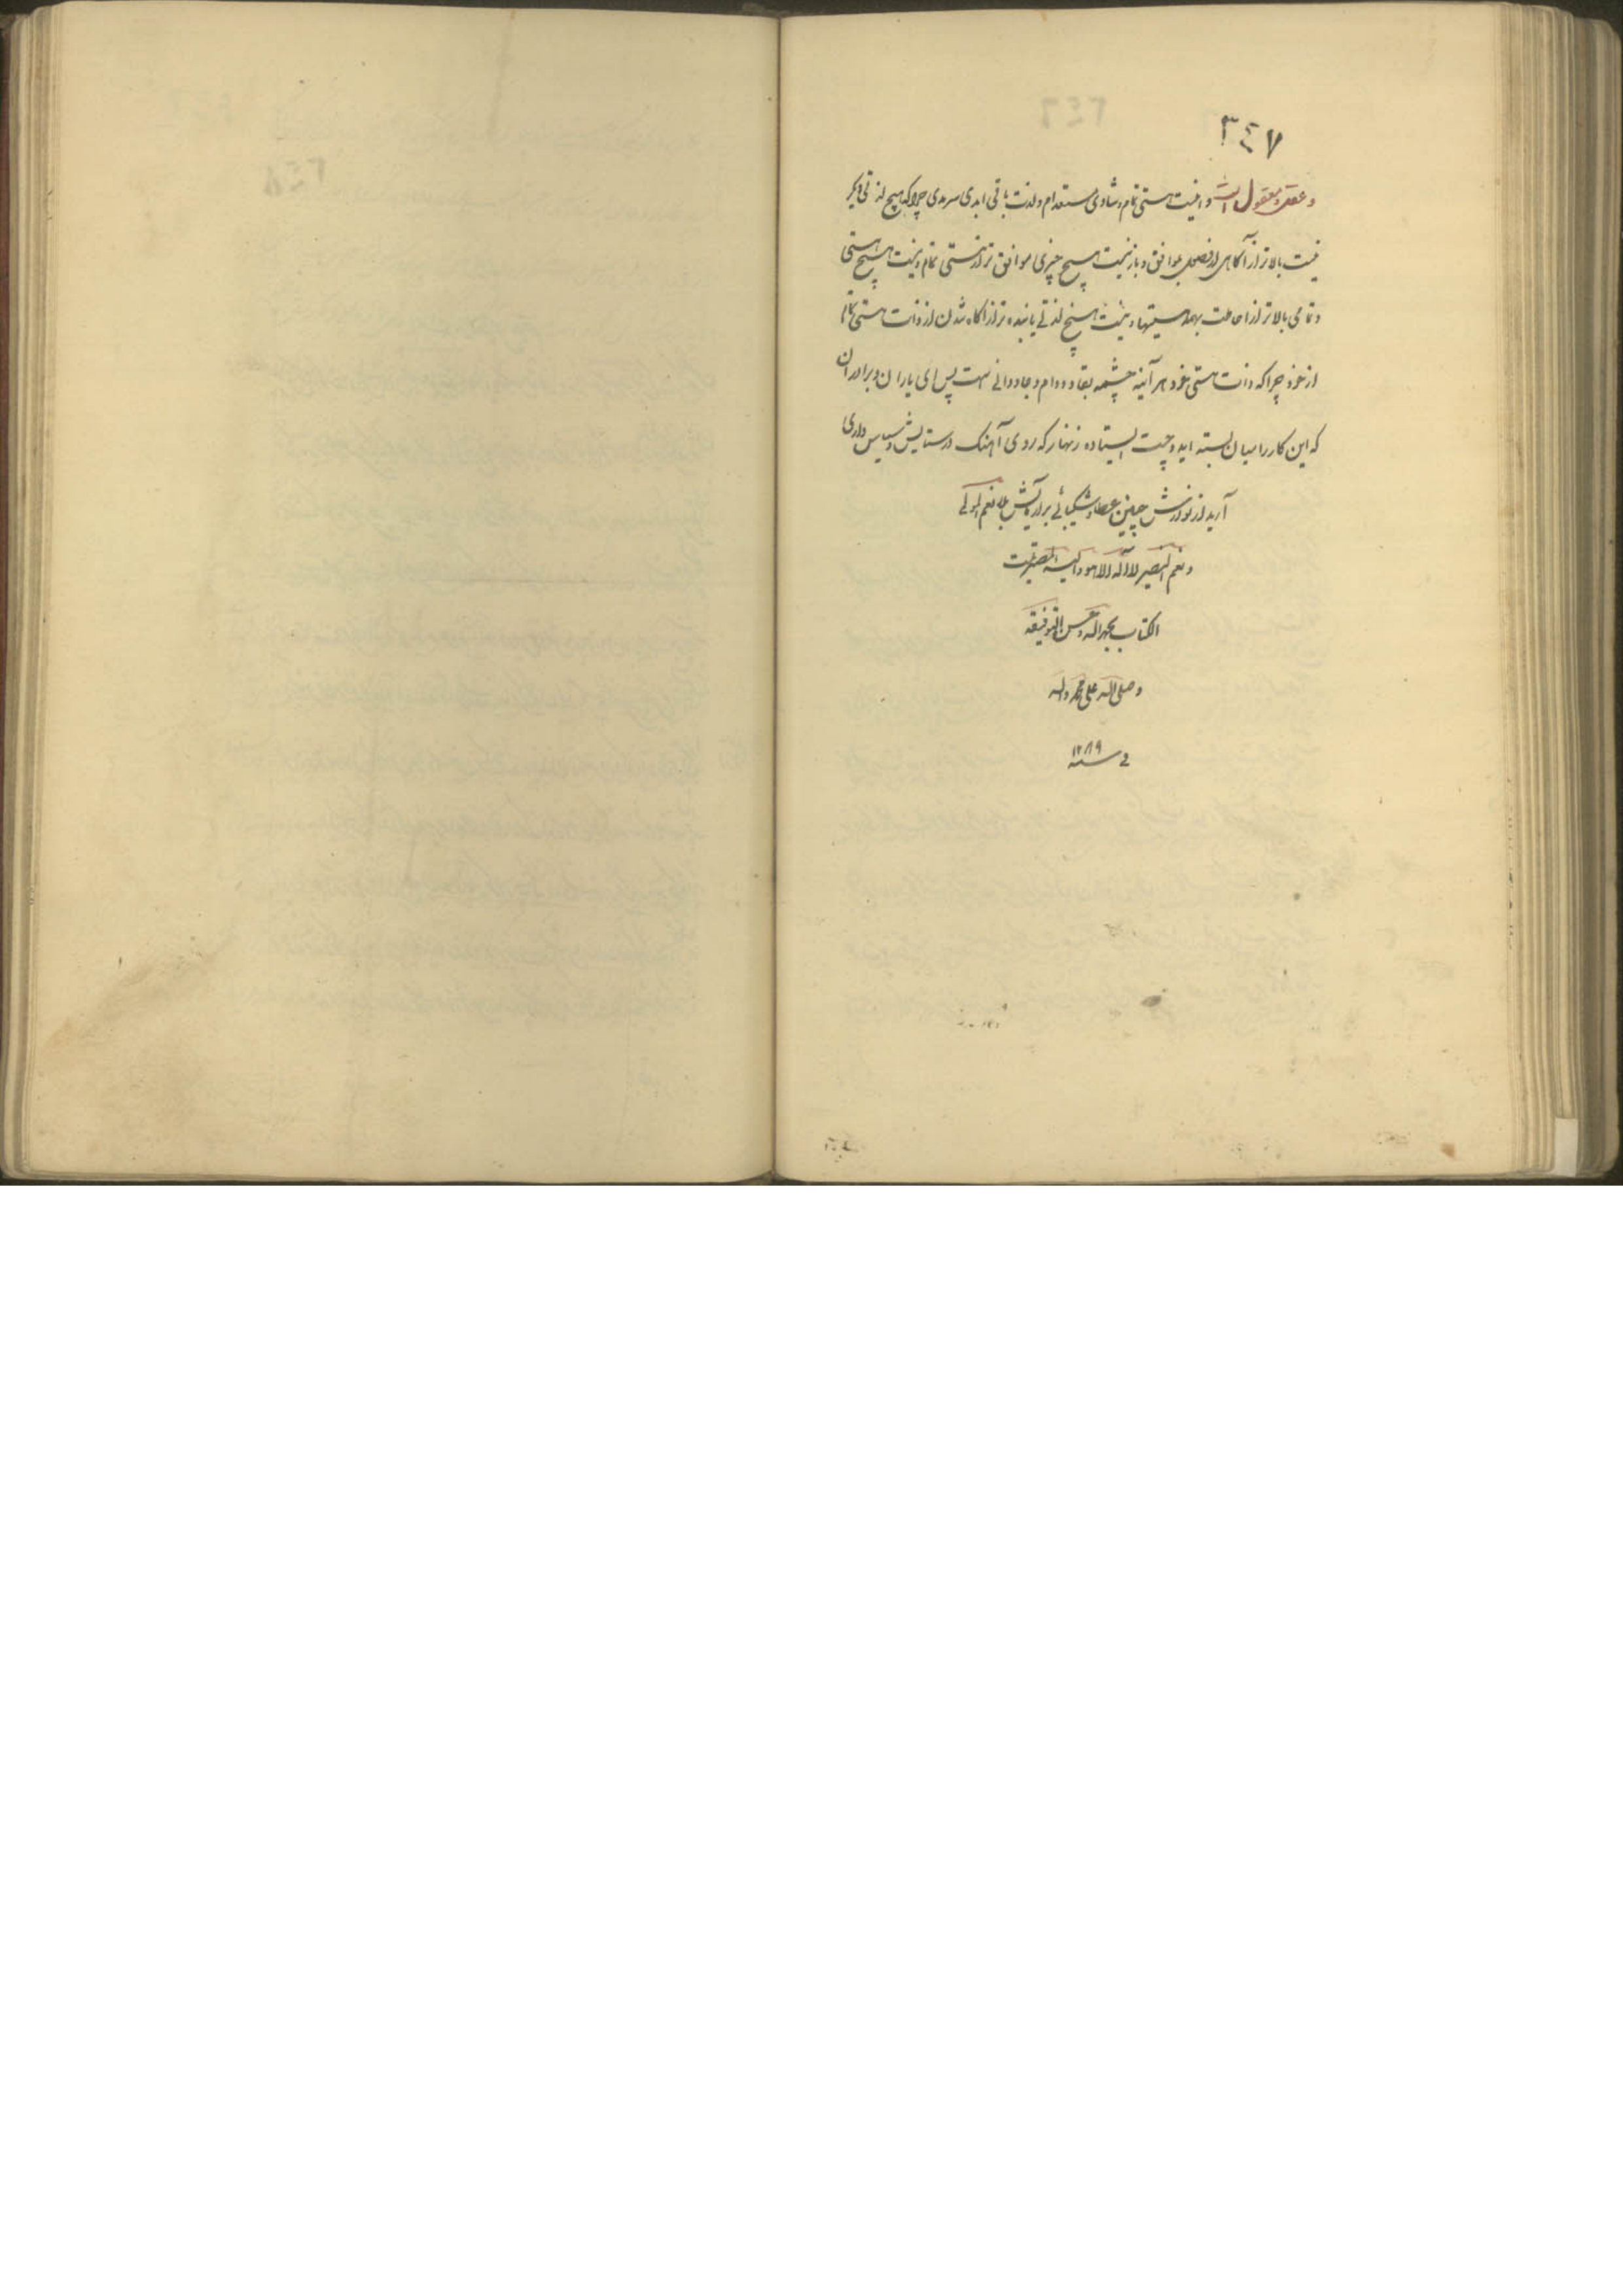 ٣٤٧
و عقل و معقول است و اینست هستی تمام و شادی مستدام و لذت باقی ابدی سرمدی چرا که هیچ لذتی دیگر
نیست بالاتر از آگاهی از حصول موافق و باز نیست هیچ چیزی موافق تر از هستی تمام و نیست هیچ هستی
و تمامی بالاتر از احاطت بهمه هستیها و نیست هیچ لذتی پاینده تر از آگاه شدن از ذات هستی تمام
از خود چرا که ذات هستی خود هر آینه چشمه بقا و دوام و جاودانی است پس ای یاران و برادران
که این کار را میان بسته اید و چست ایستاده زنهار که روی آهنگ در ستایش و سپاس داری
آرید از نوازش چنین عطا و شکیبائی بر آتش بلا نعم المولی
و نعم النصیر لا اله الا هو و الیه المصیر تمت
الکتاب بحمد الله و حسن التوفیقه
و صلی الله علی محمد و اله
فی سنه ١٢٨٩